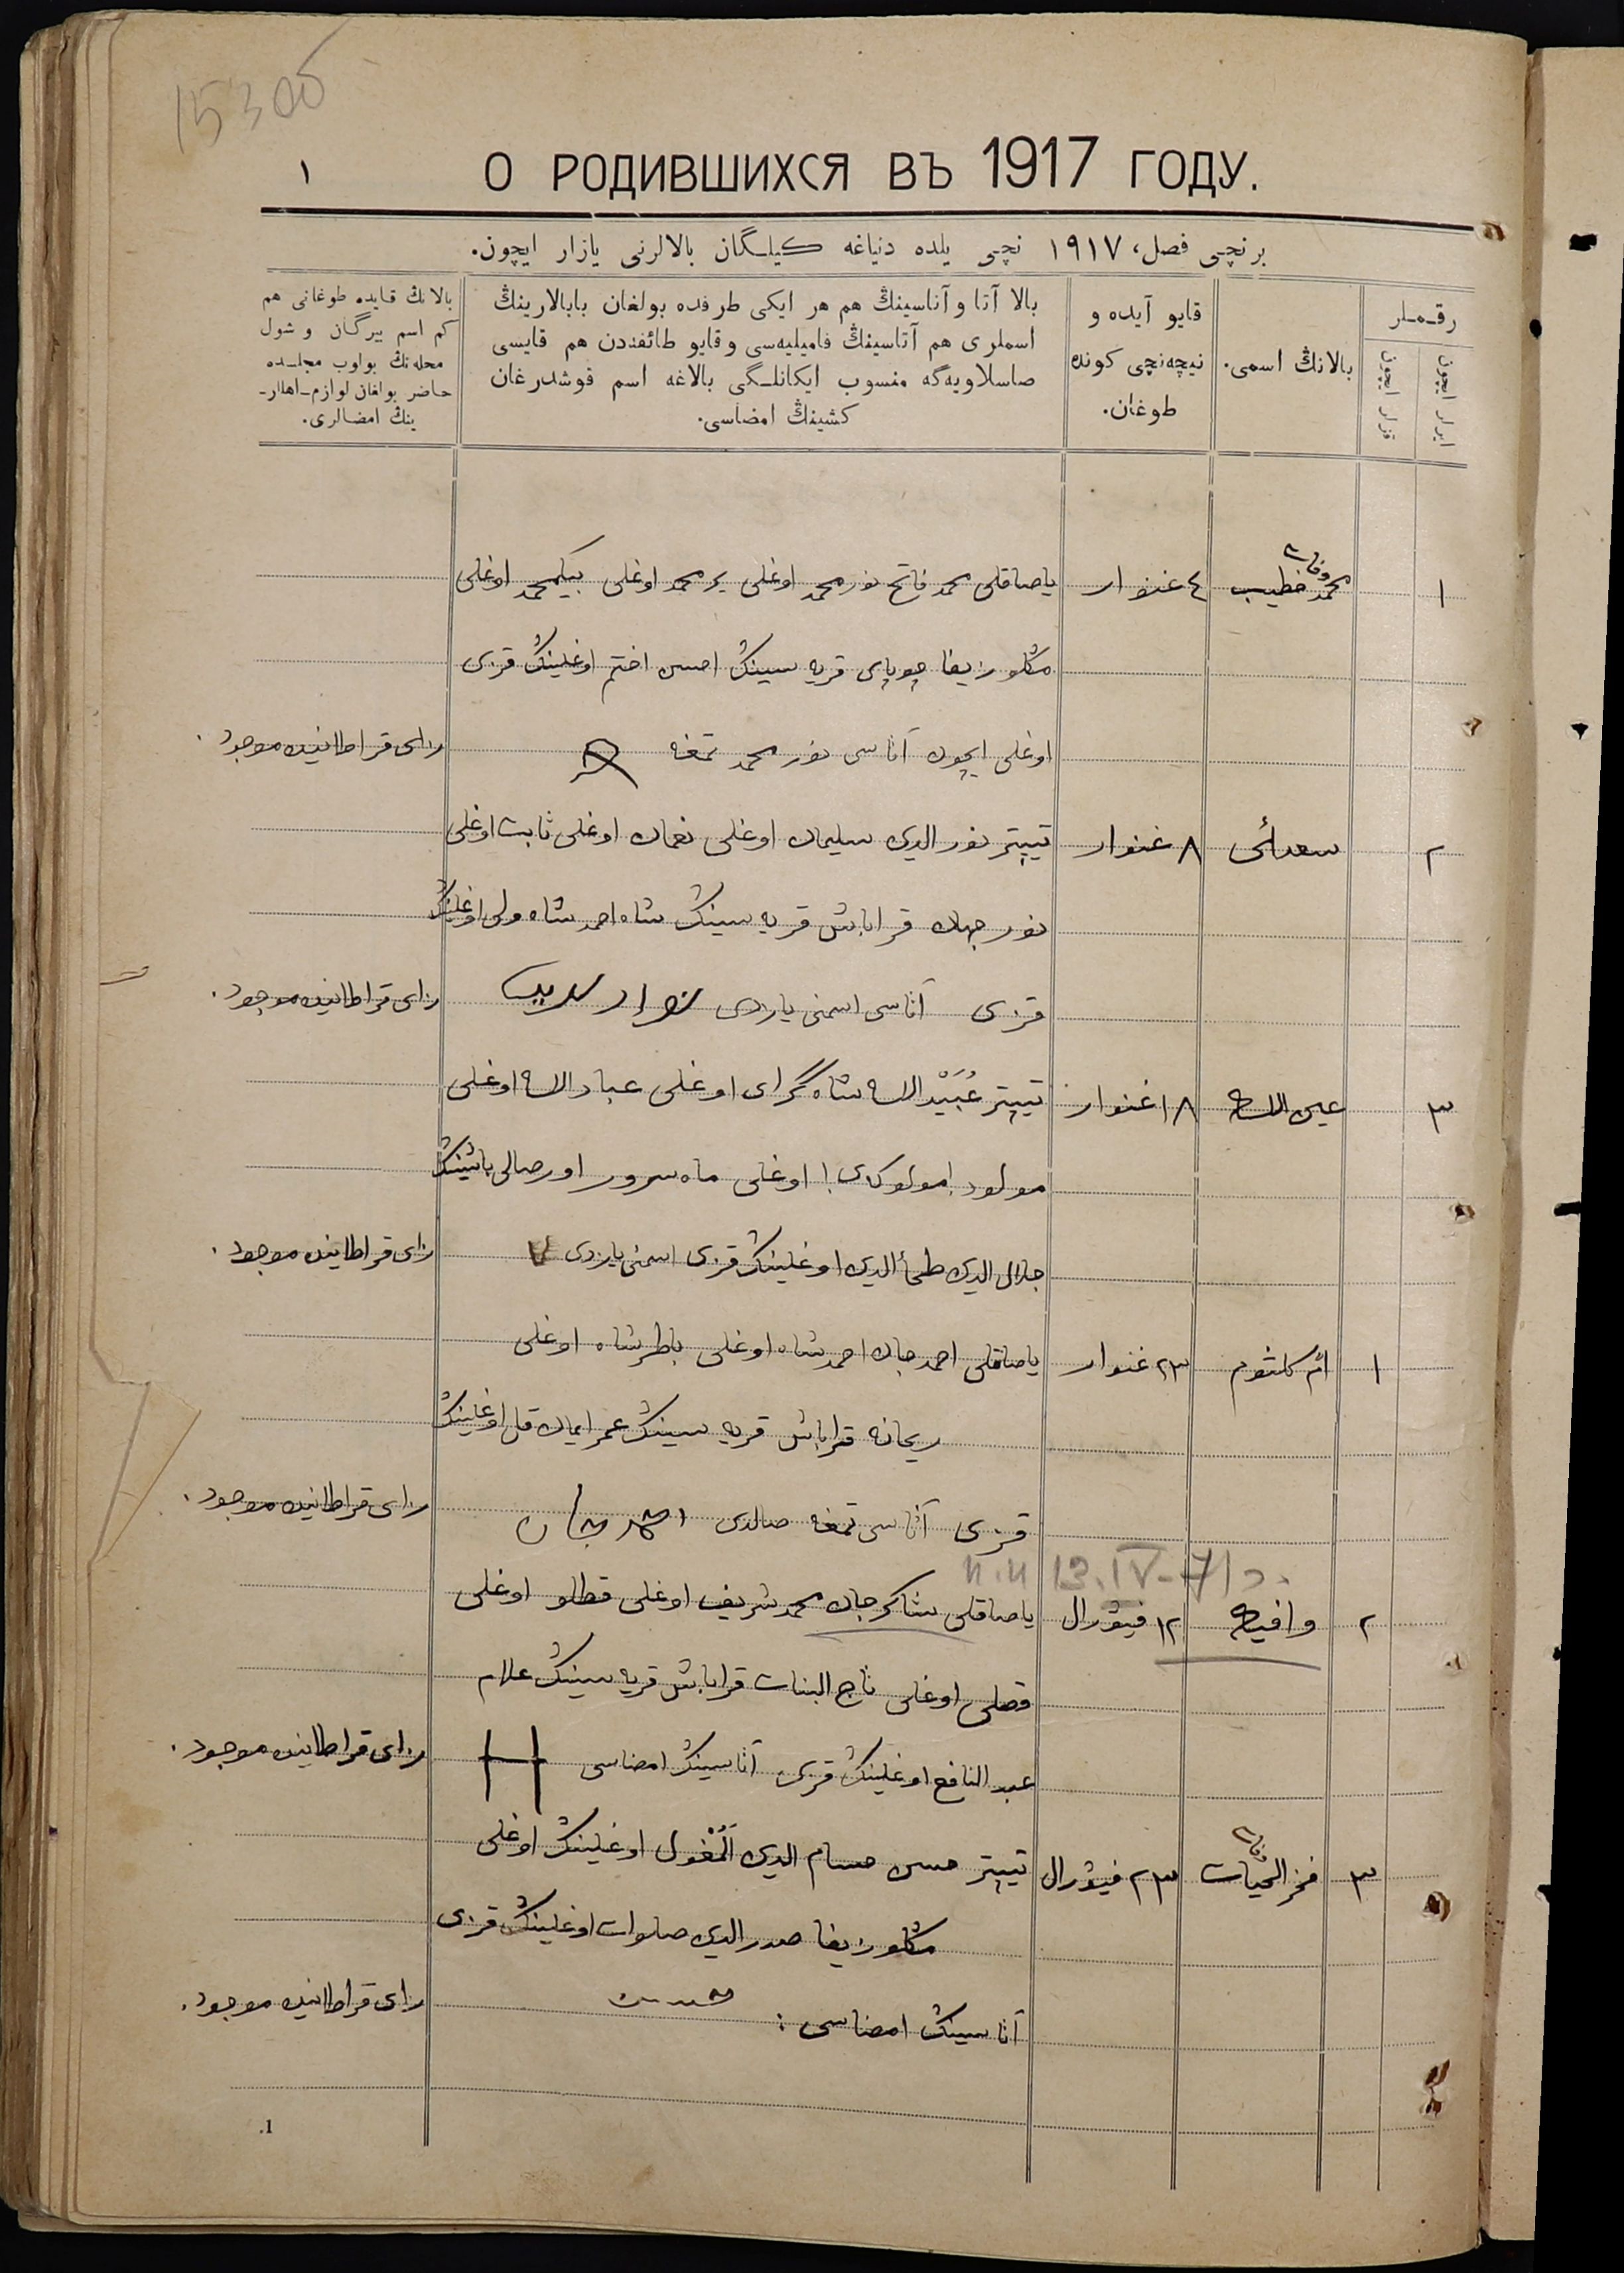 15305
О РОДИВШИХСЯ ВЪ 1917 ГОДУ.
١
برنچی فصل، ١٩١٧ نچی یلده دنیاغه کیلـگان بالالرنی یازار ایچون.
رقـمـلر
ایرلر ایچون
قزلر ایچون
بالانڭ اسمی.
قایو آیده و
نیچه‌نچی کونده
طوغان.
بالا آتا و آناسینڭ هم هر ایکی طرفده بولغان بابالارینڭ
اسملری هم آتاسینڭ فامیلیه‌سی و قایو طائفه‌دن هم قایسی
صاسلاویه‌گه منسوب ایکانلـگی بالاغه اسم قوشدرغان
کشینڭ امضاسی.
بالانڭ قایده طوغانی هم
کم اسم بیرگان و شول
محله‌نڭ بولوب مجلـده
حاضر بولغان لوازم‌ـاهللرـ
ینڭ امضالری.
١ محمد خطیب وفات ٤ غنوار یاصاقلی محمد فاتح نورمحمد اوغلی یرمحمد اوغلی بیکمحمد اوغلی
مڭلو زیفا چوپای قریه سینڭ احسن اختم اوغلینڭ قزی
اوغلی ایچون آتاسی نورمحمد تمغه
رای قراطانینه موجود.
٢ سعدائی ٨ غنوار تیپتر نورالدین سلیمان اوغلی نعمان اوغلی ثابت اوغلی
نورجهان قراباش قریه سینڭ شاه احمد شاه ولی اوغلینڭ
قزی آتاسی اسمنی یازدی
رای قراطانینه موجود.
٣ عین الله ١٨ غنوار تیپتر عُبَیْدالله شاه گرای اوغلی عبادالله اوغلی
مولود اوغلی ماه سرور اورصالی باشینڭ
جلال الدین اوغلینڭ قزی اسمنی یازدی
رای قراطانینه موجود.
١ ام کلثوم ٢٣ غنوار یاصاقلی احمدجان احمدشاه اوغلی باطرشاه اوغلی
ریحانه قراباش قریه سینڭ عمر ایمان قل اوغلینڭ
قزی آتاسی تمغه صالدی احمدجان
رای قراطانینه موجود.
13.IV-71
٢ وافیه ١٢ فیورال یاصاقلی شاکرجان محمد شریف اوغلی قطلو اوغلی
اوغلی تاج البنات قراباش قریه سینڭ علام
عبدالنافع اوغلینڭ قزی آتاسینڭ امضاسی
رای قراطانینه موجود.
٣ فخرالحیات وفات ٢٣ فیورال تیپتر حسن حسام الدین اَلْمُغول اوغلینڭ اوغلی
مڭلو زیفا صدرالدین صلوات اوغلینڭ قزی
آتاسینڭ امضاسی:
رای قراطانینه موجود.
1.